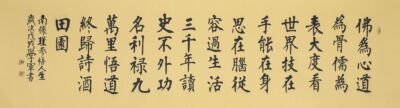 佛為心道
為骨儒為
表大度看
世界技在
手能在身
思在腦從
容過生活
三千年讀
史不外功
名利祿九
萬里悟道
終歸詩酒
田園
南懷瑾參悟人生
歲次戊戌學書